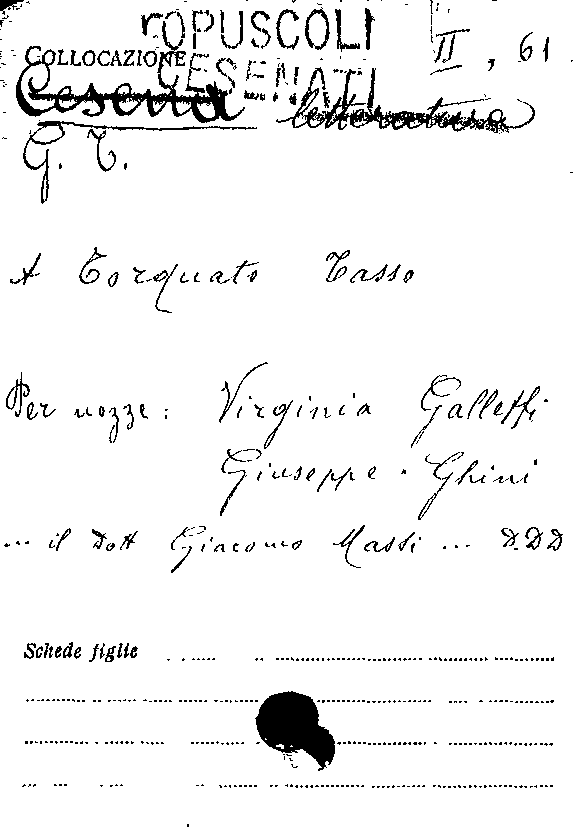 OPUSCOLI
COLLOCAZIONE II, 61
CESENATI
Cesena letteratura
G. T.
A Torquato Tasso
Per nozze: Virginia Galleffi
Giuseppe Ghini
... il Dott Giacomo Massi ... D.D.D
Schede figlie